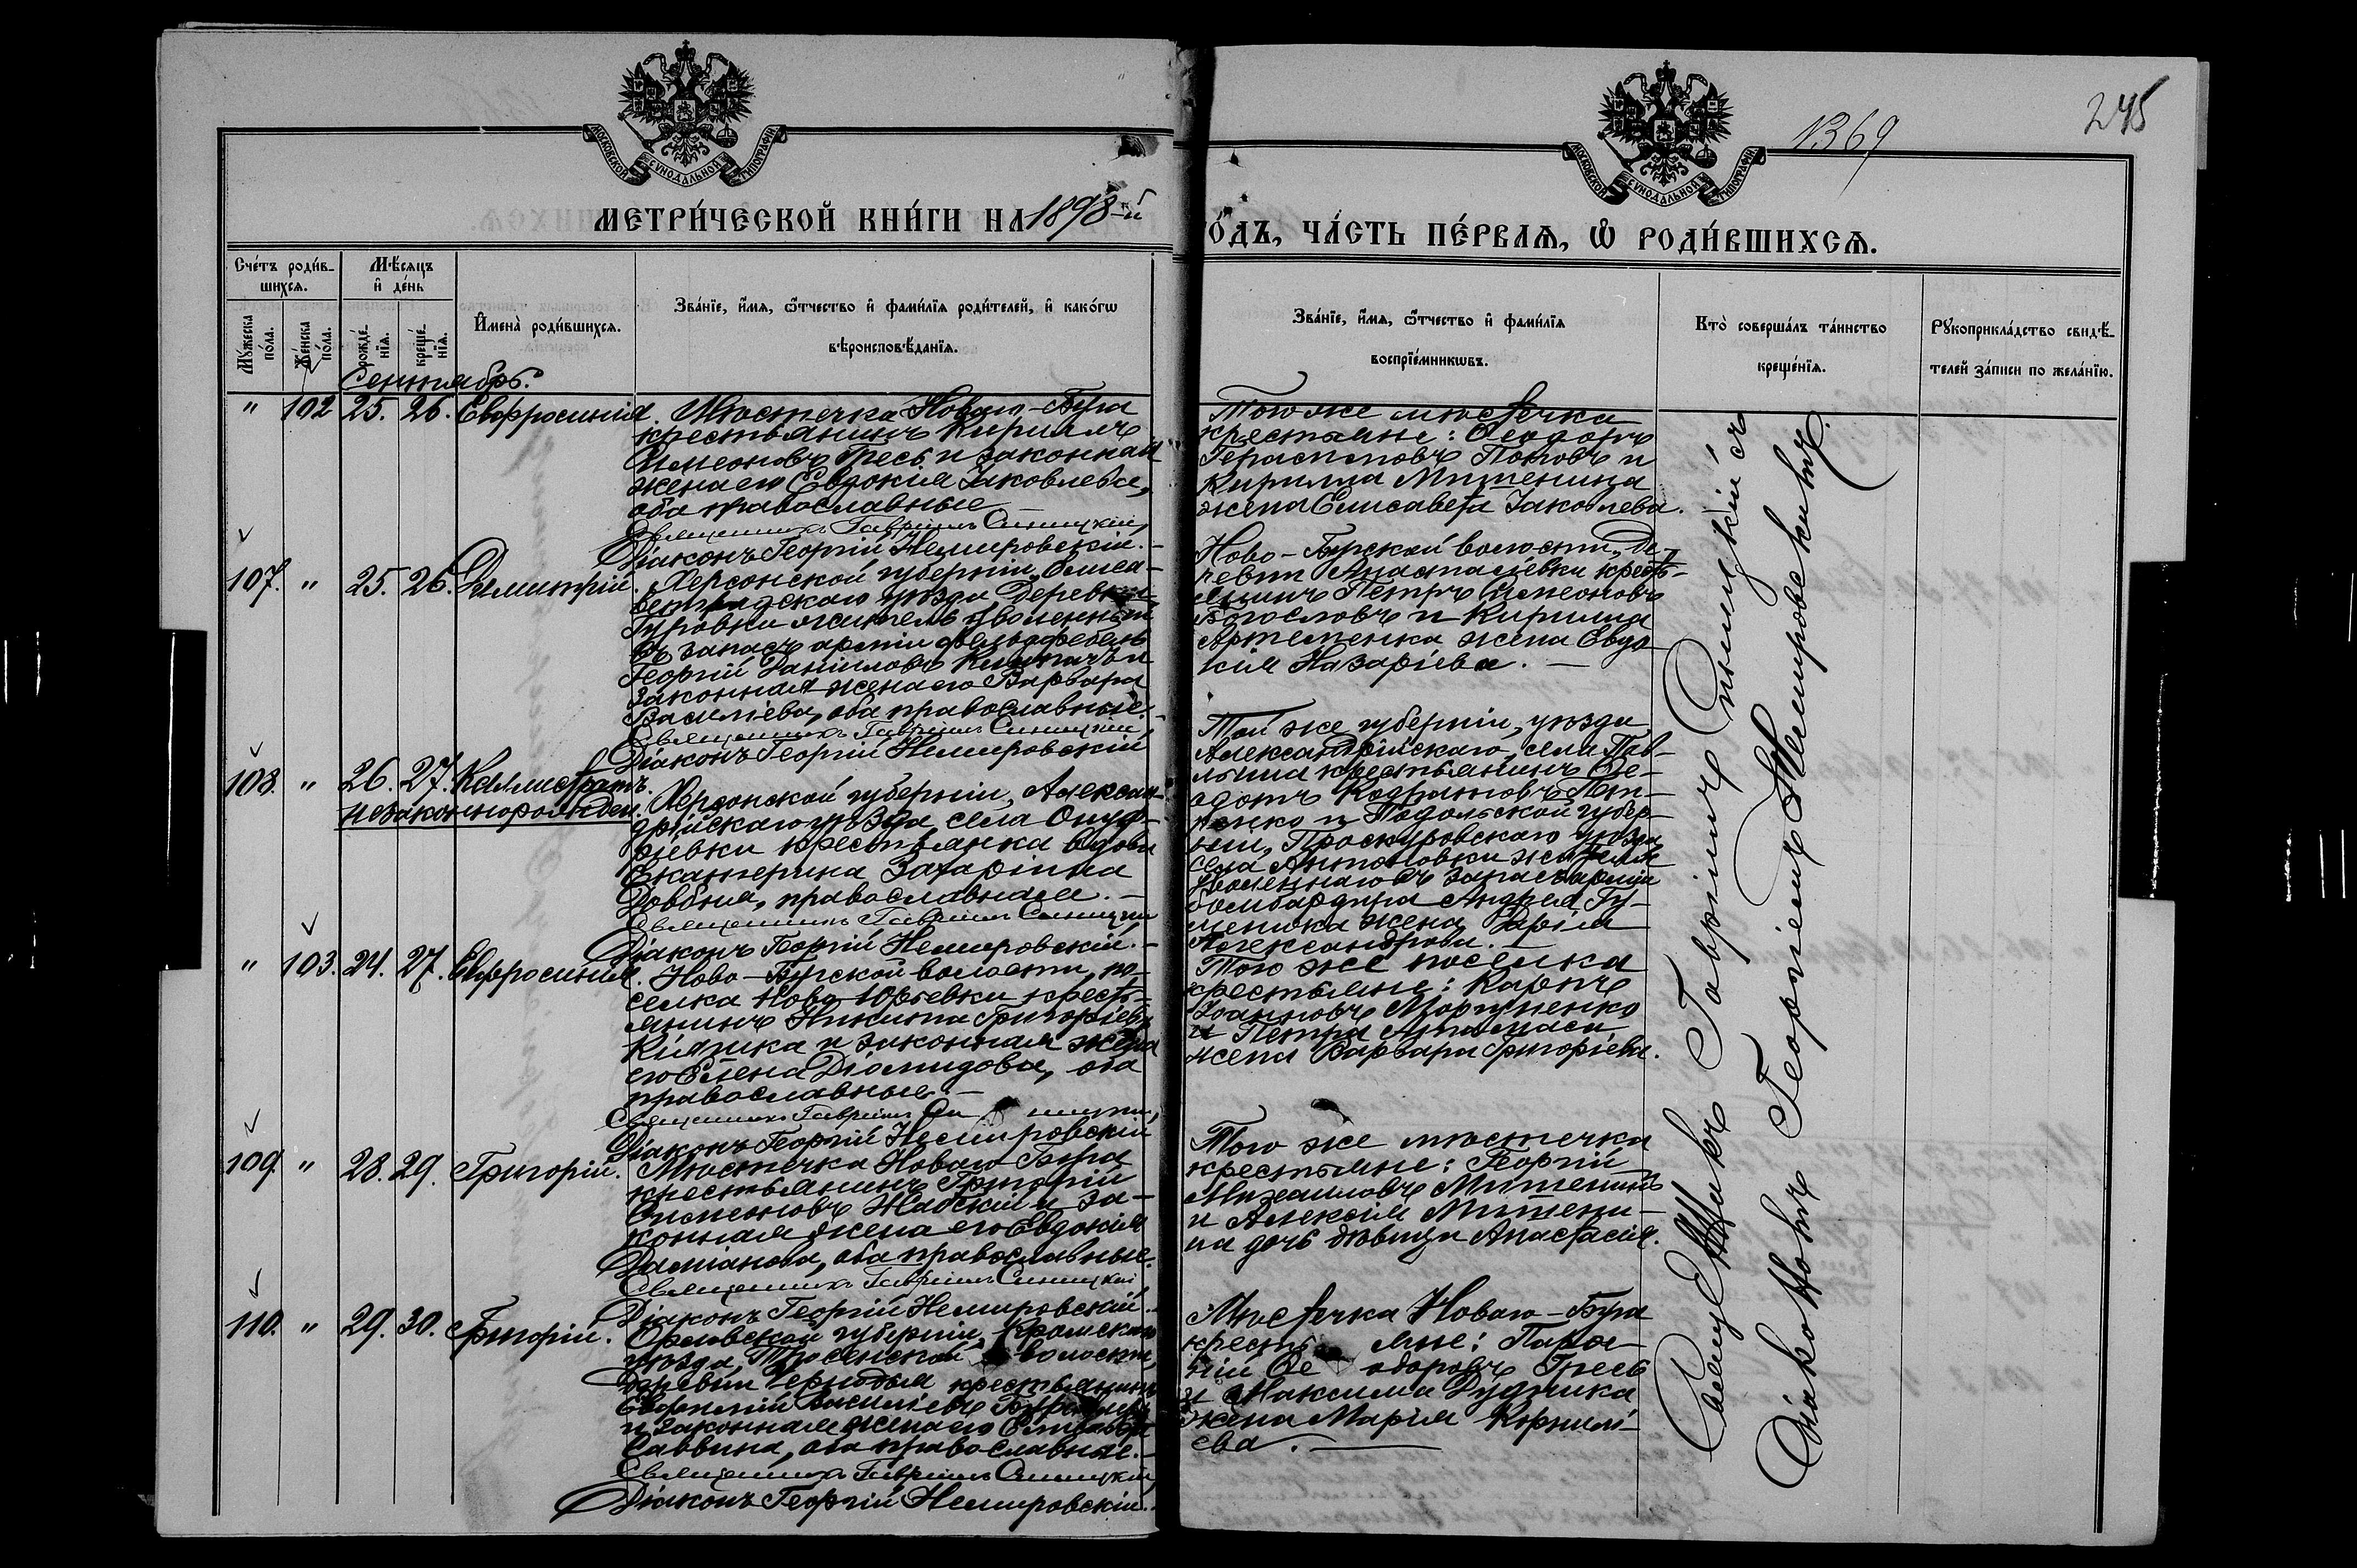 1369
245
МОСКОВСКОЙ СѴНОДАЛЬНОЙ ТИПОГРАФІИ
МОСКОВСКОЙ СѴНОДАЛЬНОЙ ТИПОГРАФІИ
МЕТРИ́ЧЕСКОЙ КНИ́ГИ НА 1898-й
ГО́ДЪ, ЧА́СТЬ ПЕ́РВАѦ, Ѡ РОДИ́ВШИХСѦ.
Сче́тъ роди́в-
шихсѧ.
Мꙋ́жеска по́ла.
Же́нска по́ла.
Мѣ́сѧцъ и де́нь
рожде́нїѧ.
креще́нїѧ.
И҆мена̀ роди́вшихсѧ.
Зва́нїе, и҆́мѧ, ѻ҆́тчество и҆ фами́лїѧ роди́телей, и҆ како́гѡ
вѣроисповѣ́данїѧ.
Зва́нїе, и҆́мѧ, ѻ҆́тчество и҆ фами́лїѧ
воспрїе́мникѡвъ.
Кто̀ соверша́лъ та́инство
креще́нїѧ.
Рꙋкоприкла́дство свидѣ́-
телей за́писи по жела́нїю.
Сентябрь.
" 102 25. 26. Евфросинія.
Мѣстечка Новаго-Буга
крестьянинъ Кириллъ
Симеоновъ Гресь и законная
жена его Евдокія Іаковлева,
оба православные
Священникъ Гавріилъ Синицкій,
Діаконъ Георгій Немировскій.-
Того же мѣстечка
крестьяне: Ѳеодоръ
Герасимовъ Поповъ и
Кирилла Митенина
жена Елисавета Іаковлева.
107. " 25. 26. Димитрій.
Херсонской губерніи, Елиса-
ветградскаго уѣзда деревни
Гуровки житель уволенный
въ запасъ арміи фельдфебель
Георгій Даніиловъ и
законная жена его Варвара
Василіева, оба православные.
Священникъ Гавріилъ Синицкій,
Діаконъ Георгій Немировскій
Ново-Бугской волости, де-
ревни Анастасіевки кресть-
янинъ Петръ Симеоновъ
Богословъ и Кирилла
Артеменка жена Евдо-
кія Назаріева. —
108. " 26. 27. Каллистратъ.
незаконнорожден.
Херсонской губерніи, Алексан-
дрійскаго уѣзда села Онуф-
ріевки крестьянка вдова
Екатерина Захаріина
Довбня, православная.-
Священникъ Гавріилъ Синицкій
Діаконъ Георгій Немировскій.-
Той же губерніи, уѣзда
Александрійскаго, села Пав-
лыша крестьянинъ Ѳе-
одотъ
и Подольской губер-
ніи, Проскуровскаго уѣзда,
села Антоновки жителя
уволеннаго въ запасъ арміи
бомбардира Андрея Гу-
менюка жена Дарія
Александрова.-
" 103. 24. 27. Евфросинія.
Ново-Бугской волости, по-
селка Ново-Юрьевки кресть-
янинъ Никита Григоріевъ
Кіяшка и законная жена
его Елена Діомидова, оба
православные.-
Священникъ Гавріилъ Синицкій,
Діаконъ Георгій Немировскій
Того же поселка
крестьяне: Карпъ
Іоанновъ Моргуненко
и Петра
жена Варвара Григоріева.
109. " 28. 29. Григорій.
Мѣстечка Новаго-Буга
крестьянинъ Григорій
Симеоновъ Жабскій и за-
конная жена его Евдокія
Даміанова, оба православные.
Священникъ Гавріилъ Синицкій,
Діаконъ Георгій Немировскій.-
Того же мѣстечка
крестьяне: Георгій
Михаиловъ Митенинъ
и Алексія Митени-
на дочь дѣвица Анастасія.
110. " 29. 30. Григорій.
Орловской губерніи, Кромскаго
уѣзда, Тросенской волости,
деревни крестьянинъ
Евфимій Василіевъ
и законная жена его Елисавета
Саввина, оба православные.-
Священникъ Гавріилъ Синицкій,
Діаконъ Георгій Немировскій.
Мѣстечка Новаго-Буга
крестьяне:
Ѳеодоровъ Гресь
и Максима Дудника
жена Марія Корнилі-
ева. —
Священникъ Гавріилъ Синицкій съ
Діакономъ Георгіемъ Немировскимъ.